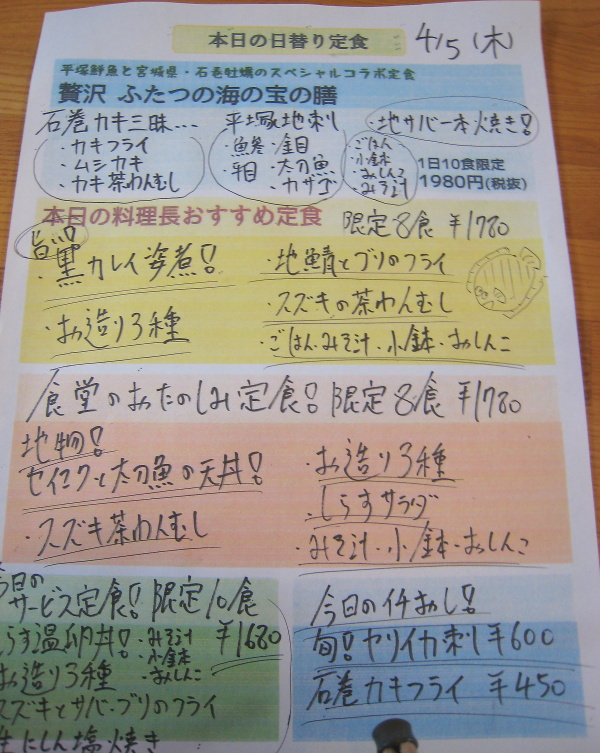 本日の日替り定食
4/5(木)
平塚鮮魚と宮城県・石巻牡蠣のスペシャルコラボ定食
贅沢 ふたつの海の宝の膳
石巻カキ三昧...
・カキフライ
・ムシカキ
・カキ茶わんむし
平塚地刺し
・魚冬・金目
・平目・太刀魚
・カサゴ
・ごはん
・小鉢
・おしんこ
・みそ汁
・地サバ一本焼き!
1日10食限定
1980円(税抜)
本日の料理長おすすめ定食
限定8食 ¥1780
旨い!
・黒カレイ姿煮!
・お造り3種
・地鯖とブリのフライ
・スズキの茶わんむし
・ごはん・みそ汁・小鉢・おしんこ
食堂のおたのしみ定食! 限定8食 ¥1780
地物!
セイゴと太刀魚の天丼!
・スズキ茶わんむし
・お造り3種
・しらすサラダ
・みそ汁・小鉢・おしんこ
今日の
サービス定食! 限定10食
しらす温卵丼!
・みそ汁
・小鉢
・おしんこ
¥1680
お造り3種
スズキとサバ・ブリのフライ
生にしん塩焼き
今日のイチおし!
旬!ヤリイカ刺し ¥600
石巻カキフライ ¥450